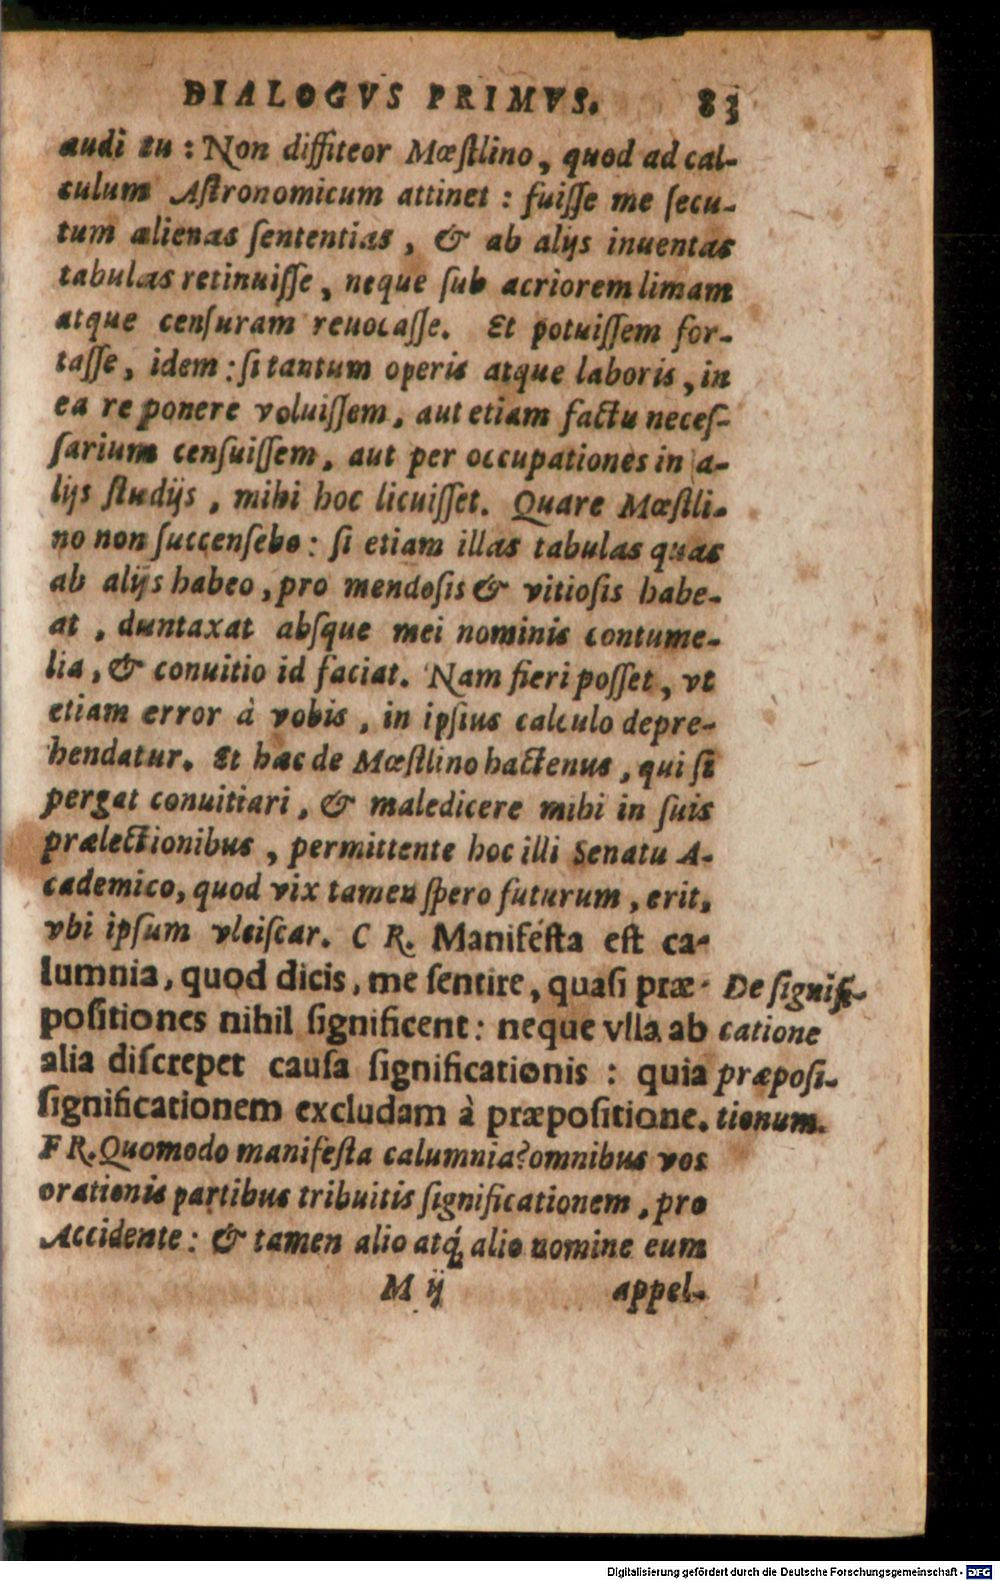 DIALOGVS PRIMVS. 83
audi tu : Non diffiteor Mœſtlino, quod ad cal-
culum Aſtronomicum attinet : fuiſſe me ſecu-
tum alienas ſententias, & ab alijs inuentas
tabulas retinuiſſe, neque ſub acriorem limam
atque cenſuram reuocaſſe. Et potuiſſem for-
taſſe, idem : ſi tantum operis atque laboris, in
ea re ponere voluiſſem, aut etiam factu neceſ-
ſarium cenſuiſſem, aut per occupationes in a-
lijs ſtudijs, mihi hoc licuiſſet. Quare Mœſtli-
no non ſuccenſebo : ſi etiam illas tabulas quas
ab alijs habeo, pro mendoſis & vitioſis habe-
at, duntaxat abſque mei nominis contume-
lia, & conuitio id faciat. Nam fieri poſſet, vt
etiam error à vobis, in ipſius calculo depre-
hendatur. Et hac de Mœſtlino hactenus, qui ſi
pergat conuitiari, & maledicere mihi in ſuis
prælectionibus, permittente hoc illi Senatu A-
cademico, quod vix tamen ſpero futurum, erit,
vbi ipſum vlciſcar. C R. Manifeſta eſt ca-
lumnia, quod dicis, me ſentire, quaſi præ-
poſitiones nihil ſignificent : neque vlla ab
alia diſcrepet cauſa ſignificationis : quia
ſignificationem excludam à præpoſitione.
De ſignifi-
catione
præpoſi-
tionum.
F R. Quomodo manifeſta calumnia? omnibus vos
orationis partibus tribuitis ſignificationem, pro
Accidente : & tamen alio atq́; alio nomine eum
M ij appel-
Digitalisierung gefördert durch die Deutsche Forschungsgemeinschaft - DFG